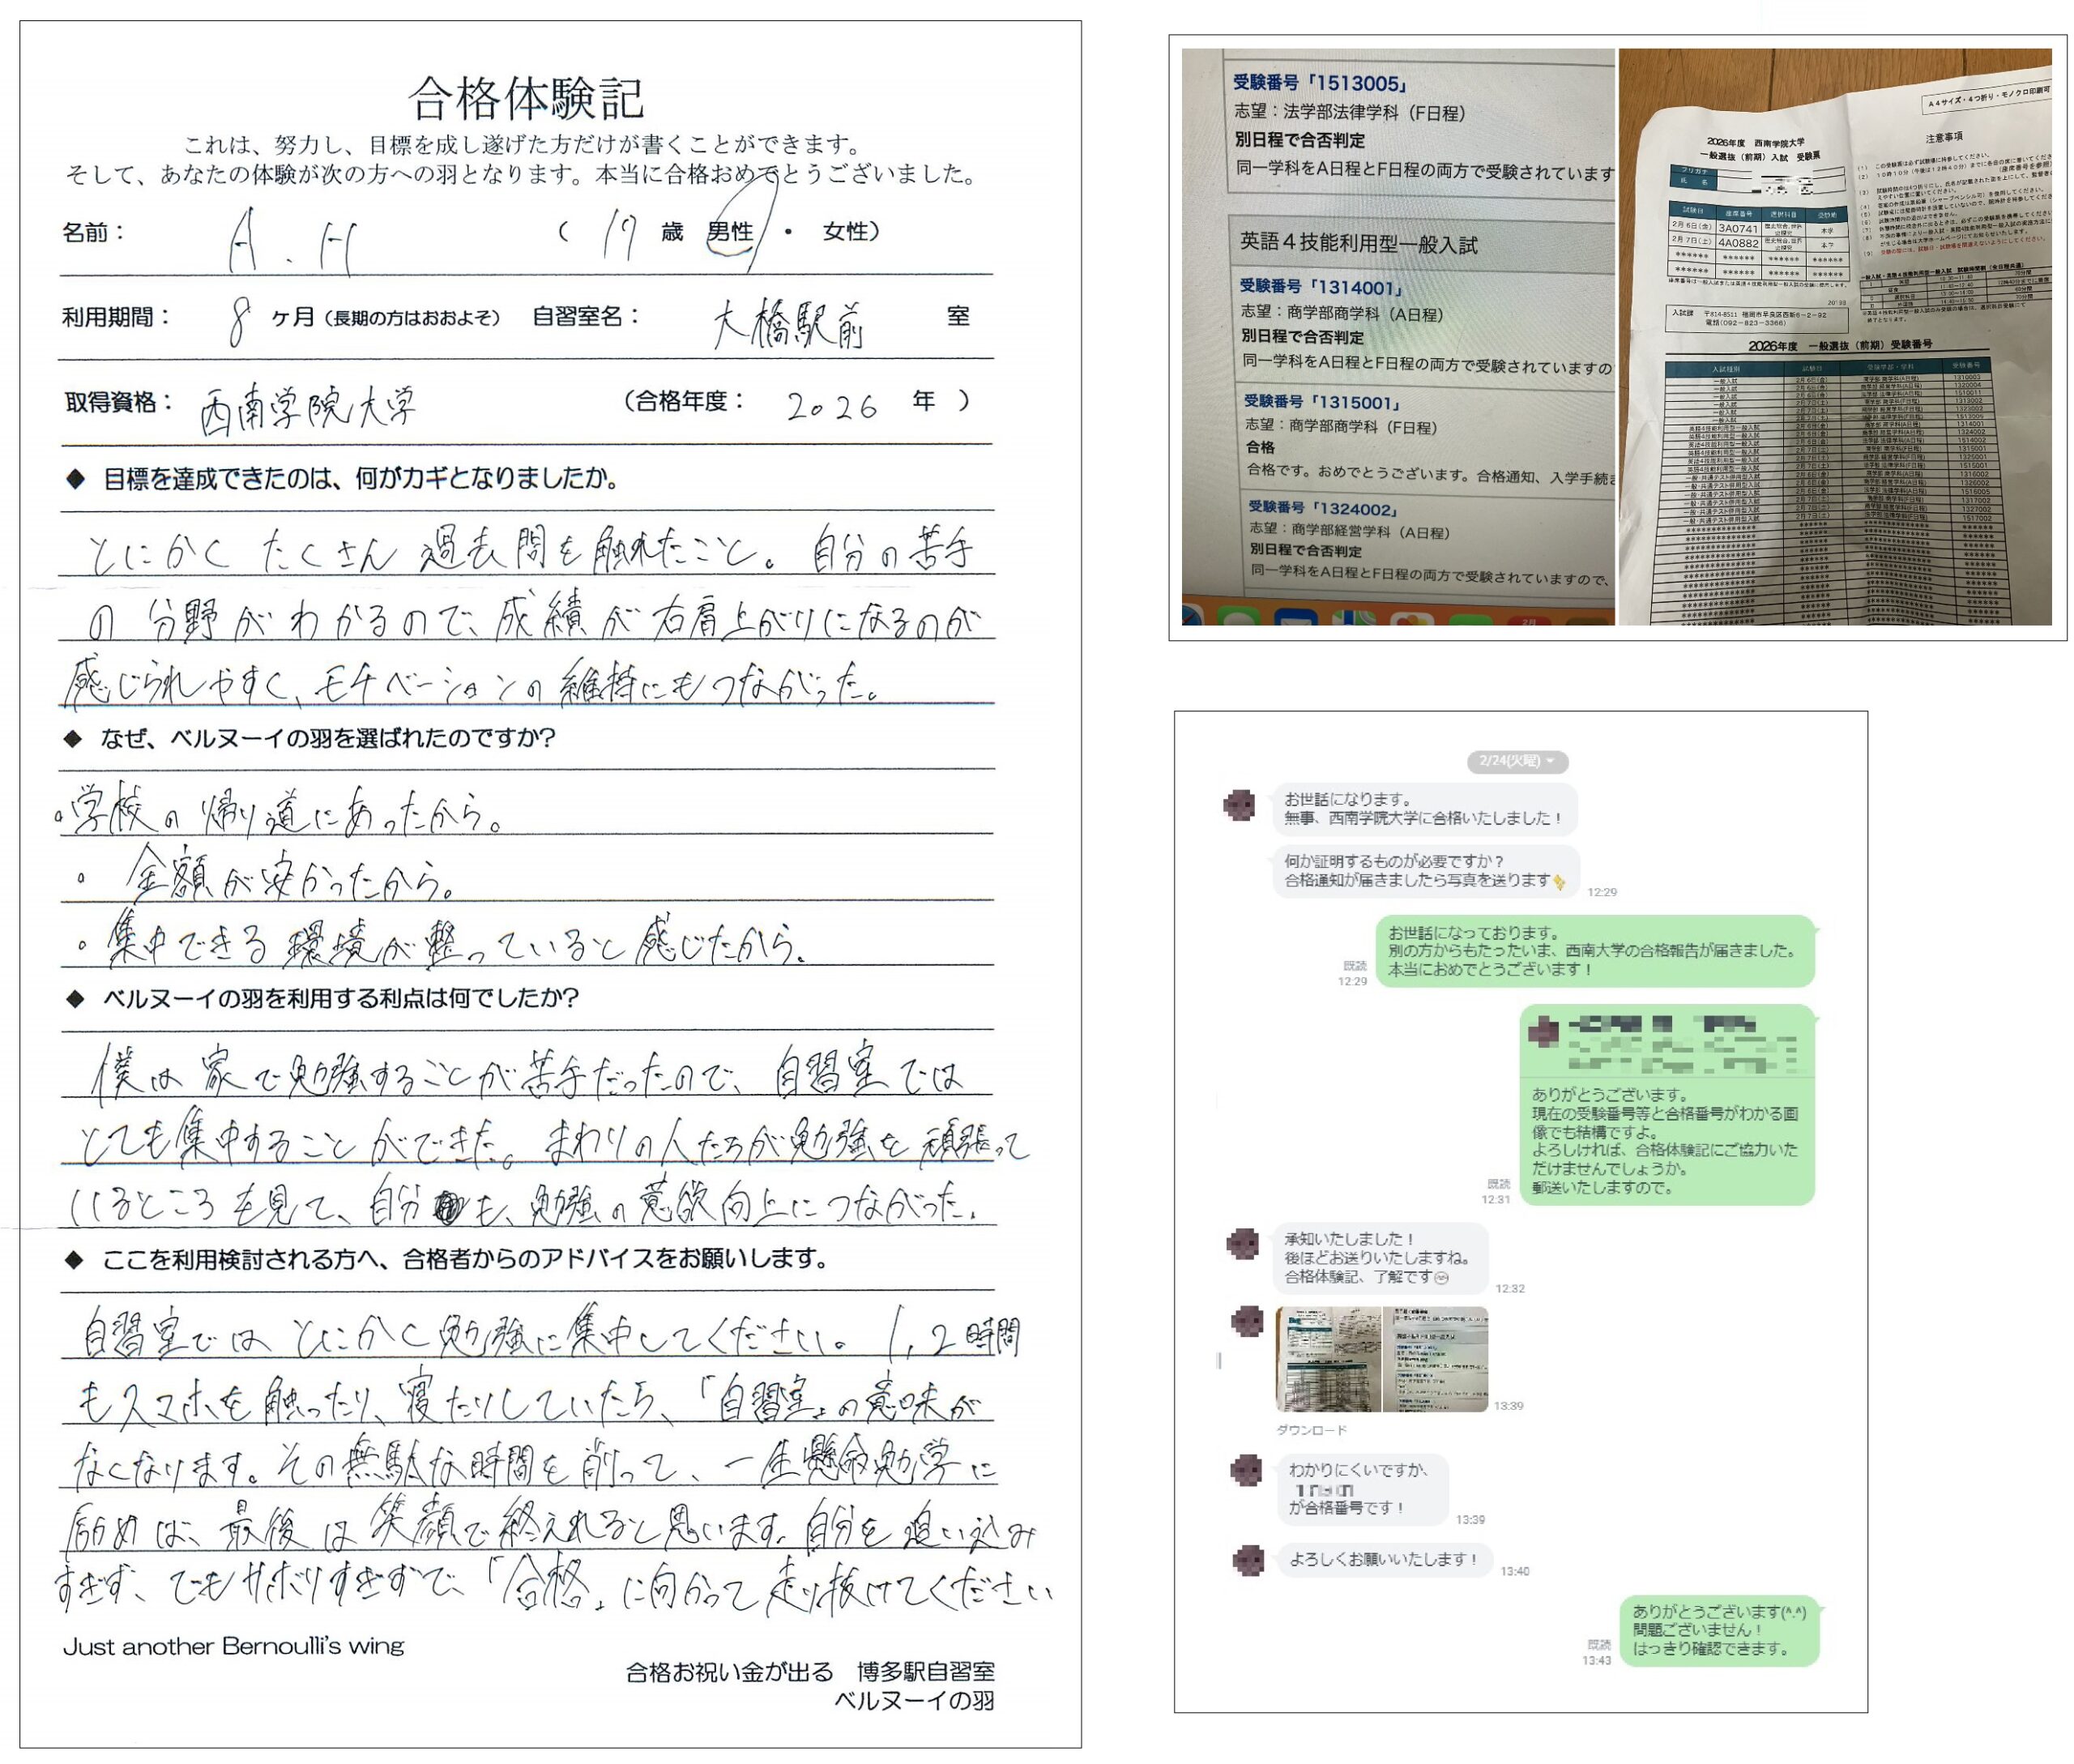 合格体験記
これは、努力し、目標を成し遂げた方だけが書くことができます。
そして、あなたの体験が次の方への羽となります。本当に合格おめでとうございました。
名前： A.H （ 19 歳 男性 ・ 女性）
利用期間： 8 ヶ月（長期の方はおおよそ） 自習室名： 大橋駅前 室
取得資格： 西南学院大学 （合格年度： 2026 年 ）
◆ 目標を達成できたのは、何がカギとなりましたか。
とにかく たくさん 過去問を触れたこと。自分の苦手
の 分野がわかるので、成績が右肩上がりになるのが
感じられやすく、モチベーションの維持にもつながった。
◆ なぜ、ベルヌーイの羽を選ばれたのですか?
・学校の帰り道にあったから。
・金額が安かったから。
・集中できる環境が整っていると感じたから。
◆ ベルヌーイの羽を利用する利点は何でしたか?
僕は家で勉強することが苦手だったので、自習室では
とても集中することができた。まわりの人たちが勉強を頑張って
いるところを見て、自分も、勉強の意欲向上につながった。
◆ ここを利用検討される方へ、合格者からのアドバイスをお願いします。
自習室ではとにかく勉強に集中してください。1,2時間
もスマホを触ったり、寝たりしていたら、「自習室」の意味が
なくなります。その無駄な時間を削って、一生懸命勉学に
励めば、最後は笑顔で終えれると思います。自分を追い込み
すぎず、でもサボりすぎずで、「合格」に向かって走り抜けてください
Just another Bernoulli's wing
合格お祝い金が出る 博多駅自習室
ベルヌーイの羽
受験番号「1513005」
志望：法学部法律学科（F日程）
別日程で合否判定
同一学科をA日程とF日程の両方で受験されています
英語４技能利用型一般入試
受験番号「1314001」
志望：商学部商学科（A日程）
別日程で合否判定
同一学科をA日程とF日程の両方で受験されていますの
受験番号「1315001」
志望：商学部商学科（F日程）
合格
合格です。おめでとうございます。合格通知、入学手続き
受験番号「1324002」
志望：商学部経営学科（A日程）
別日程で合否判定
同一学科をA日程とF日程の両方で受験されていますので、
A4サイズ・4つ折り・モノクロ印刷可
2026年度 西南学院大学
一般選抜（前期）入試 受験票
注意事項
フリガナ
氏 名
試験日 座席番号 選択科目 受験地
2月6日(金) 3A0741
2月7日(土) 4A0882
入試課 〒814-8511 福岡市早良区西新6-2-92
電話(092-823-3366)
2026年度 一般選抜（前期）受験番号
入試種別 試験日 受験学部・学科 受験番号
2/24(火曜)
お世話になります。
無事、西南学院大学に合格いたしました！
何か証明するものが必要ですか？
合格通知が届きましたら写真を送ります✨
12:29
お世話になっております。
別の方からもたったいま、西南大学の合格報告が届きました。
本当におめでとうございます！
既読
12:29
ありがとうございます。
現在の受験番号等と合格番号がわかる画
像でも結構ですよ。
よろしければ、合格体験記にご協力いた
だけませんでしょうか。
郵送いたしますので。
既読
12:31
承知いたしました！
後ほどお送りいたしますね。
合格体験記、了解です
12:32
13:39
ダウンロード
わかりにくいですが、
が合格番号です！
13:39
よろしくお願いいたします！
13:40
ありがとうございます(^.^)
問題ございません！
はっきり確認できます。
既読
13:43